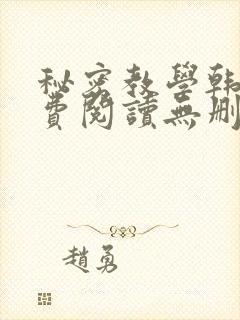 秘密教學韩
費閱讀無刪
趙勇